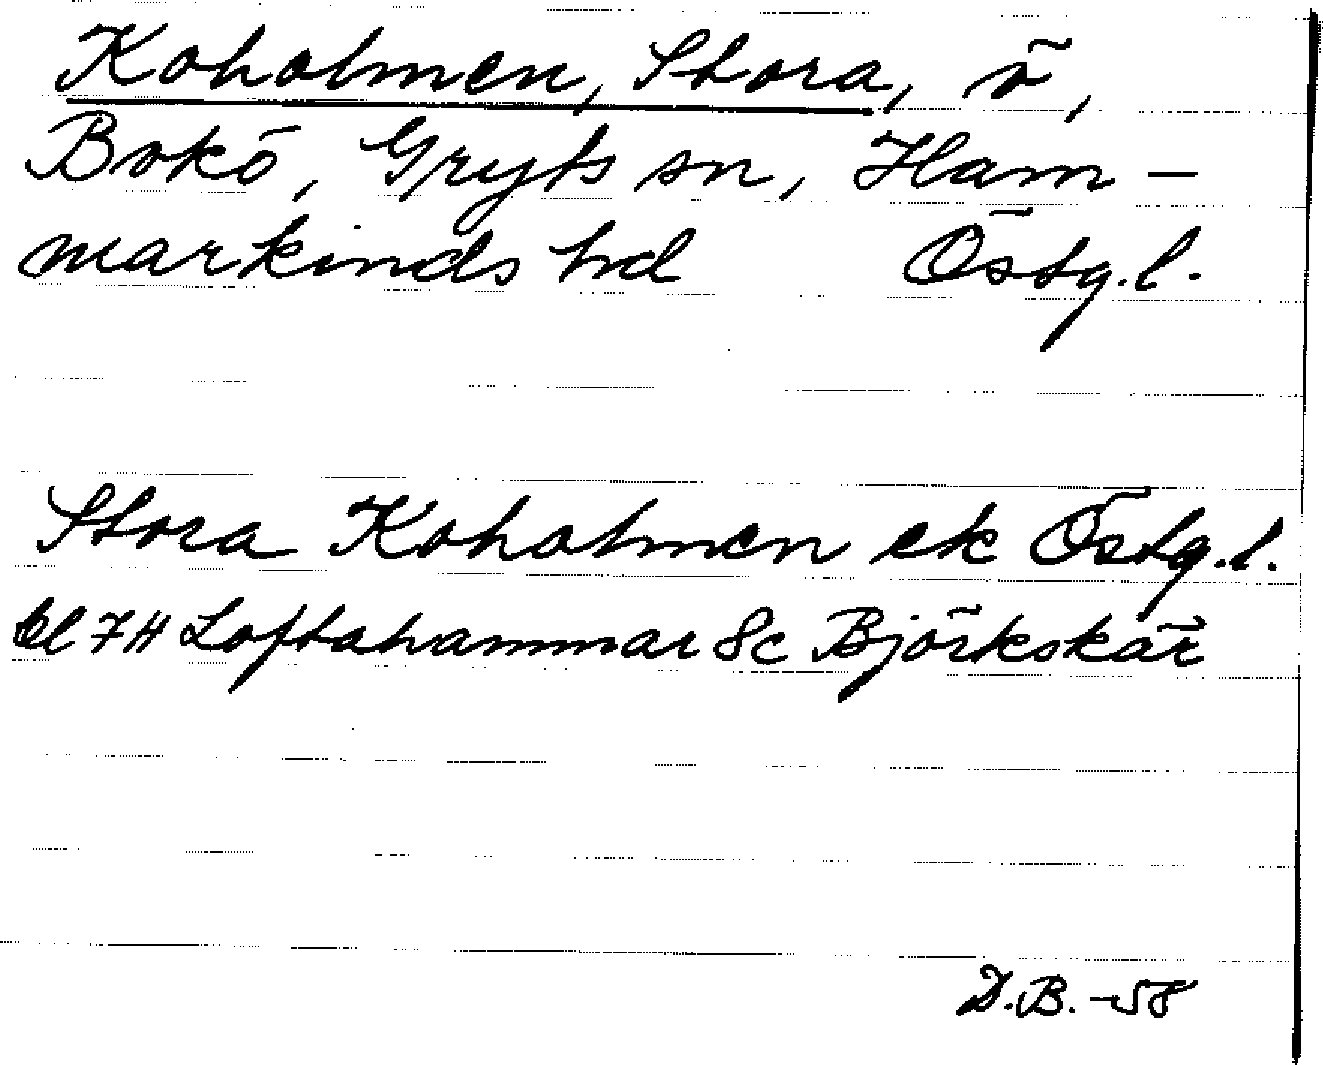 Koholmen, Stora, ö,
Bokö, Gryts sn, Ham-
markinds hd Östg.l.
Stora Koholmen ek Östg.l.
bl 7H Loftahammar 8c Björkskär
D.B. -58